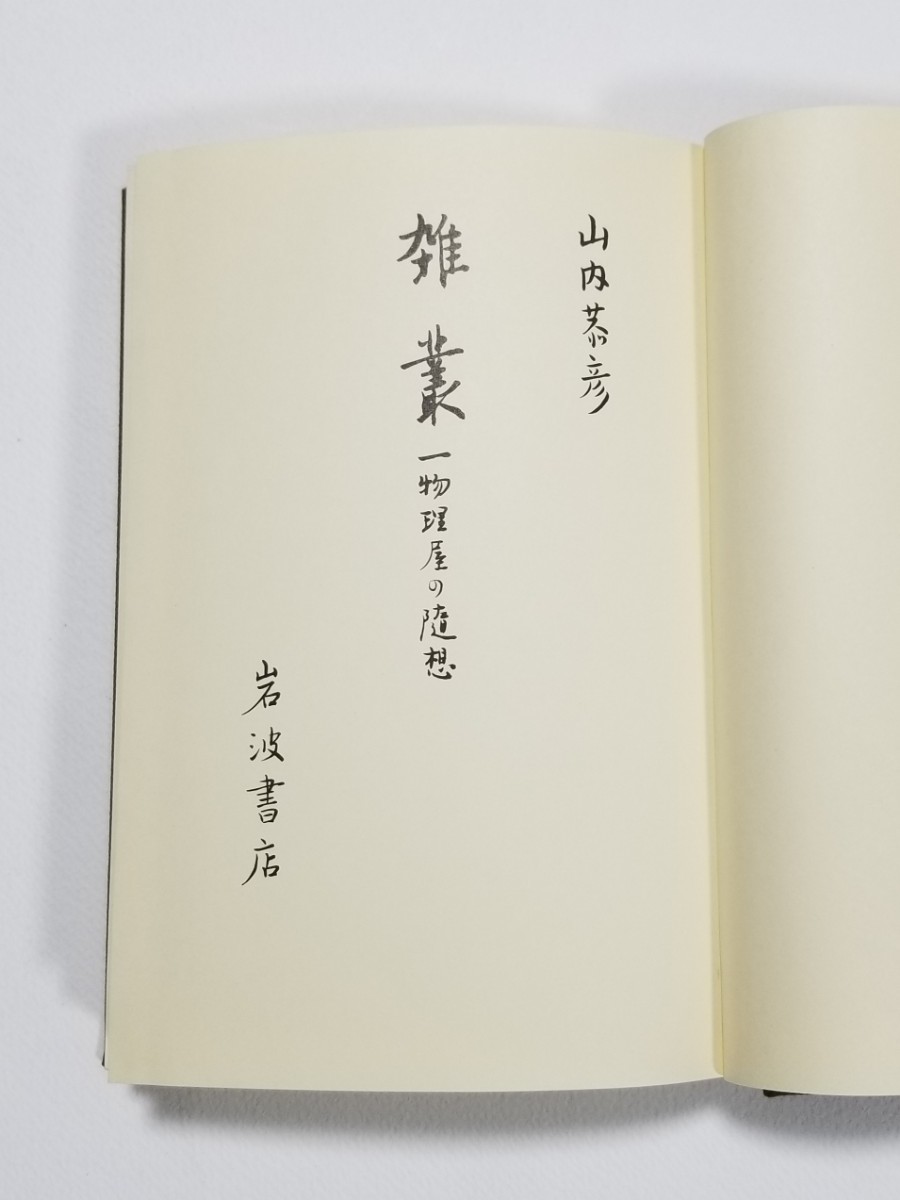 山内恭彦
雑叢 一物理屋の随想
岩波書店